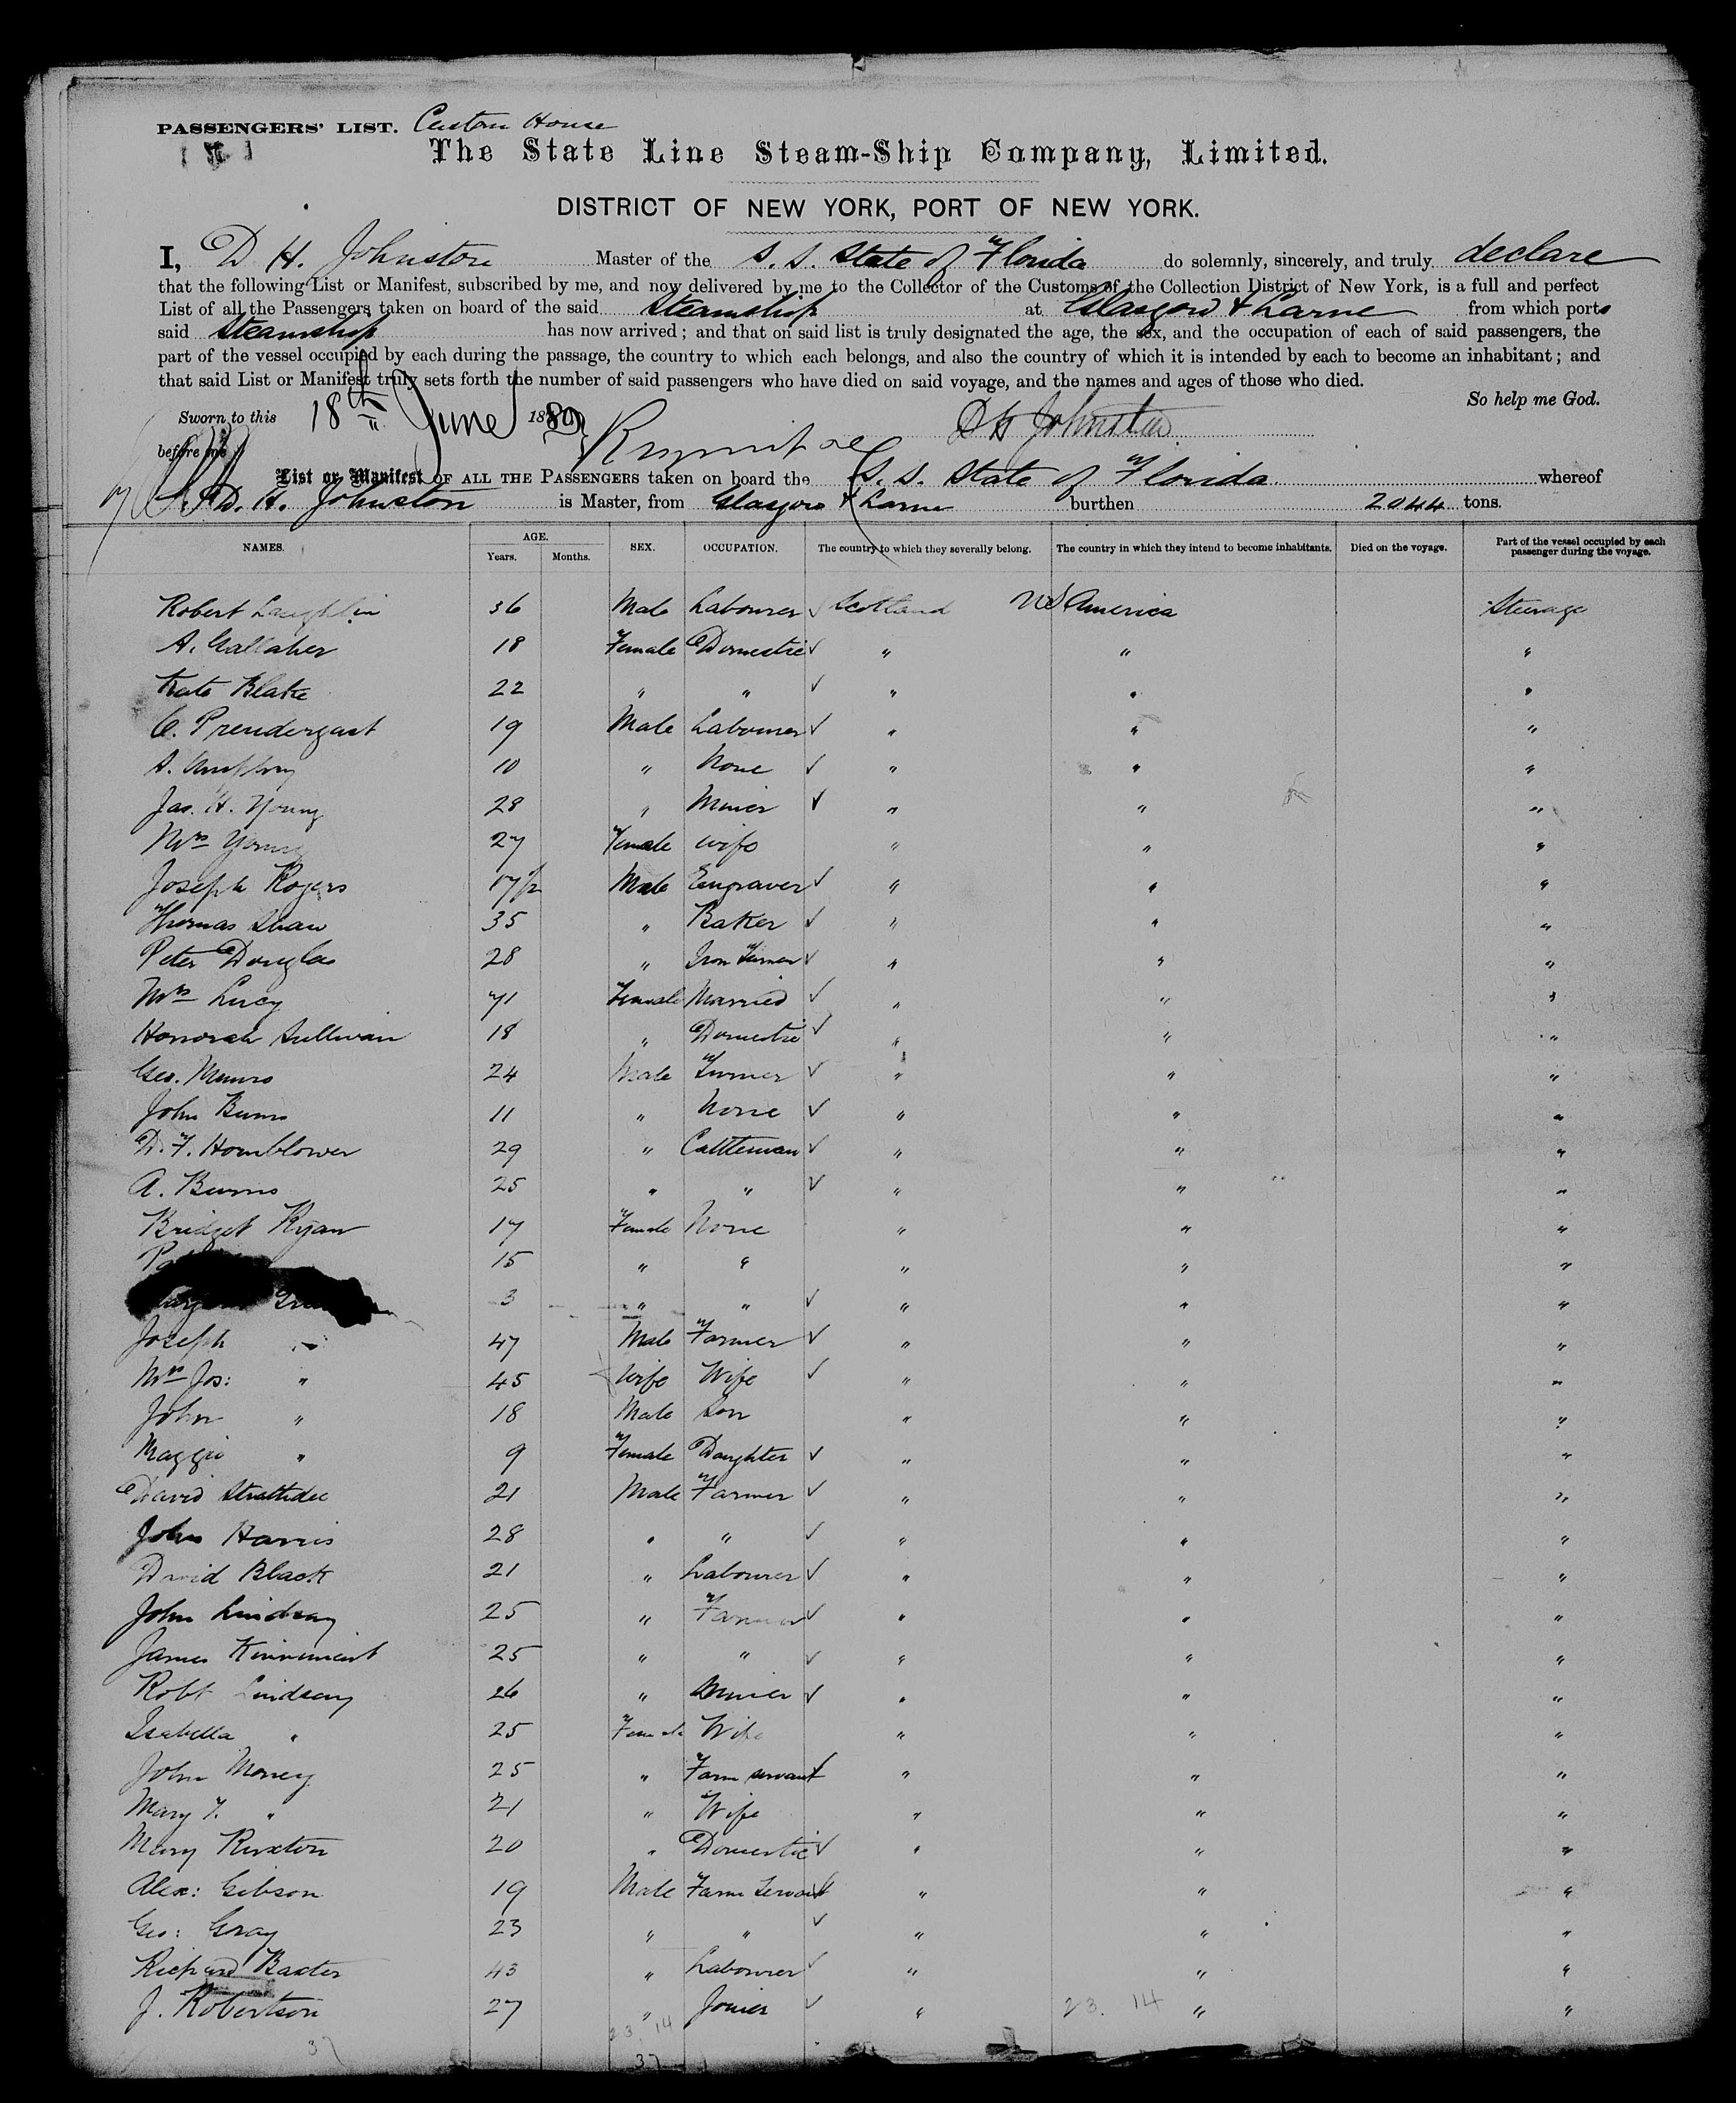 PASSENGERS' LIST. Custom House
The State Line Steam-Ship Company, Limited.
DISTRICT OF NEW YORK, PORT OF NEW YORK.
I, D. H. Johnston Master of the S. S. State of Florida do solemnly, sincerely, and truly declare
that the following List or Manifest, subscribed by me, and now delivered by me to the Collector of the Customs of the Collection District of New York, is a full and perfect
List of all the Passengers taken on board of the said Steamship at Glasgow & Larne from which ports
said Steamship has now arrived; and that on said list is truly designated the age, the sex, and the occupation of each of said passengers, the
part of the vessel occupied by each during the passage, the country to which each belongs, and also the country of which it is intended by each to become an inhabitant; and
that said List or Manifest truly sets forth the number of said passengers who have died on said voyage, and the names and ages of those who died.
So help me God.
Sworn to this 18th June 18
before me D H Johnston
List or Manifest OF ALL THE PASSENGERS taken on board the S. S. State of Florida whereof
D. H. Johnston is Master, from Glasgow & Larne burthen 2044 tons.
NAMES. AGE. Years. Months. SEX. OCCUPATION. The country to which they severally belong. The country in which they intend to become inhabitants. Died on the voyage. Part of the vessel occupied by each passenger during the voyage.
Robert Laughlin 36 Male Labourer Scotland US America Steerage
A. Gallaher 18 Female Domestic " " "
Kate Blake 22 " " " " "
C. Prendergast 19 Male Labourer " " "
A. 10 " None " " "
Jas. H. Young 28 " Miner " " "
Mrs Young 27 Female Wife " " "
Joseph Rogers 17½ Male Engraver " " "
Thomas Shaw 35 " Baker " " "
Peter Douglas 28 " Iron Turner " " "
Mrs Lucy 71 Female Married " " "
Honorah Sullivan 18 " Domestic " " "
Geo. Munro 24 Male Turner " " "
John Burns 11 " None " " "
D. F. Hornblower 29 " Cattleman " " "
A. Burns 25 " " " " "
Bridget Ryan 17 Female None " " "
15 " " " " "
3 " " " " "
Joseph " 47 Male Farmer " " "
Mrs Jos: " 45 Wife Wife " " "
John " 18 Male Son " " "
Maggie " 9 Female Daughter " " "
David Strathdee 21 Male Farmer " " "
John Harris 28 " " " " "
David Black 21 " Labourer " " "
John Lindsay 25 " Farmer " " "
James Kinnimient 25 " " " " "
Robt Lindsay 26 " Miner " " "
Isabella " 25 Female Wife " " "
John Money 25 " Farm servant " " "
Mary F. " 21 " Wife " " "
Mary Ruxton 20 " Domestic " " "
Alex: Gibson 19 Male Farm Servant " " "
Geo: Gray 23 " " " " "
Richard Baxter 43 " Labourer " " "
J. Robertson 27 " Joiner " " "
23. 14
37 23. 14
37